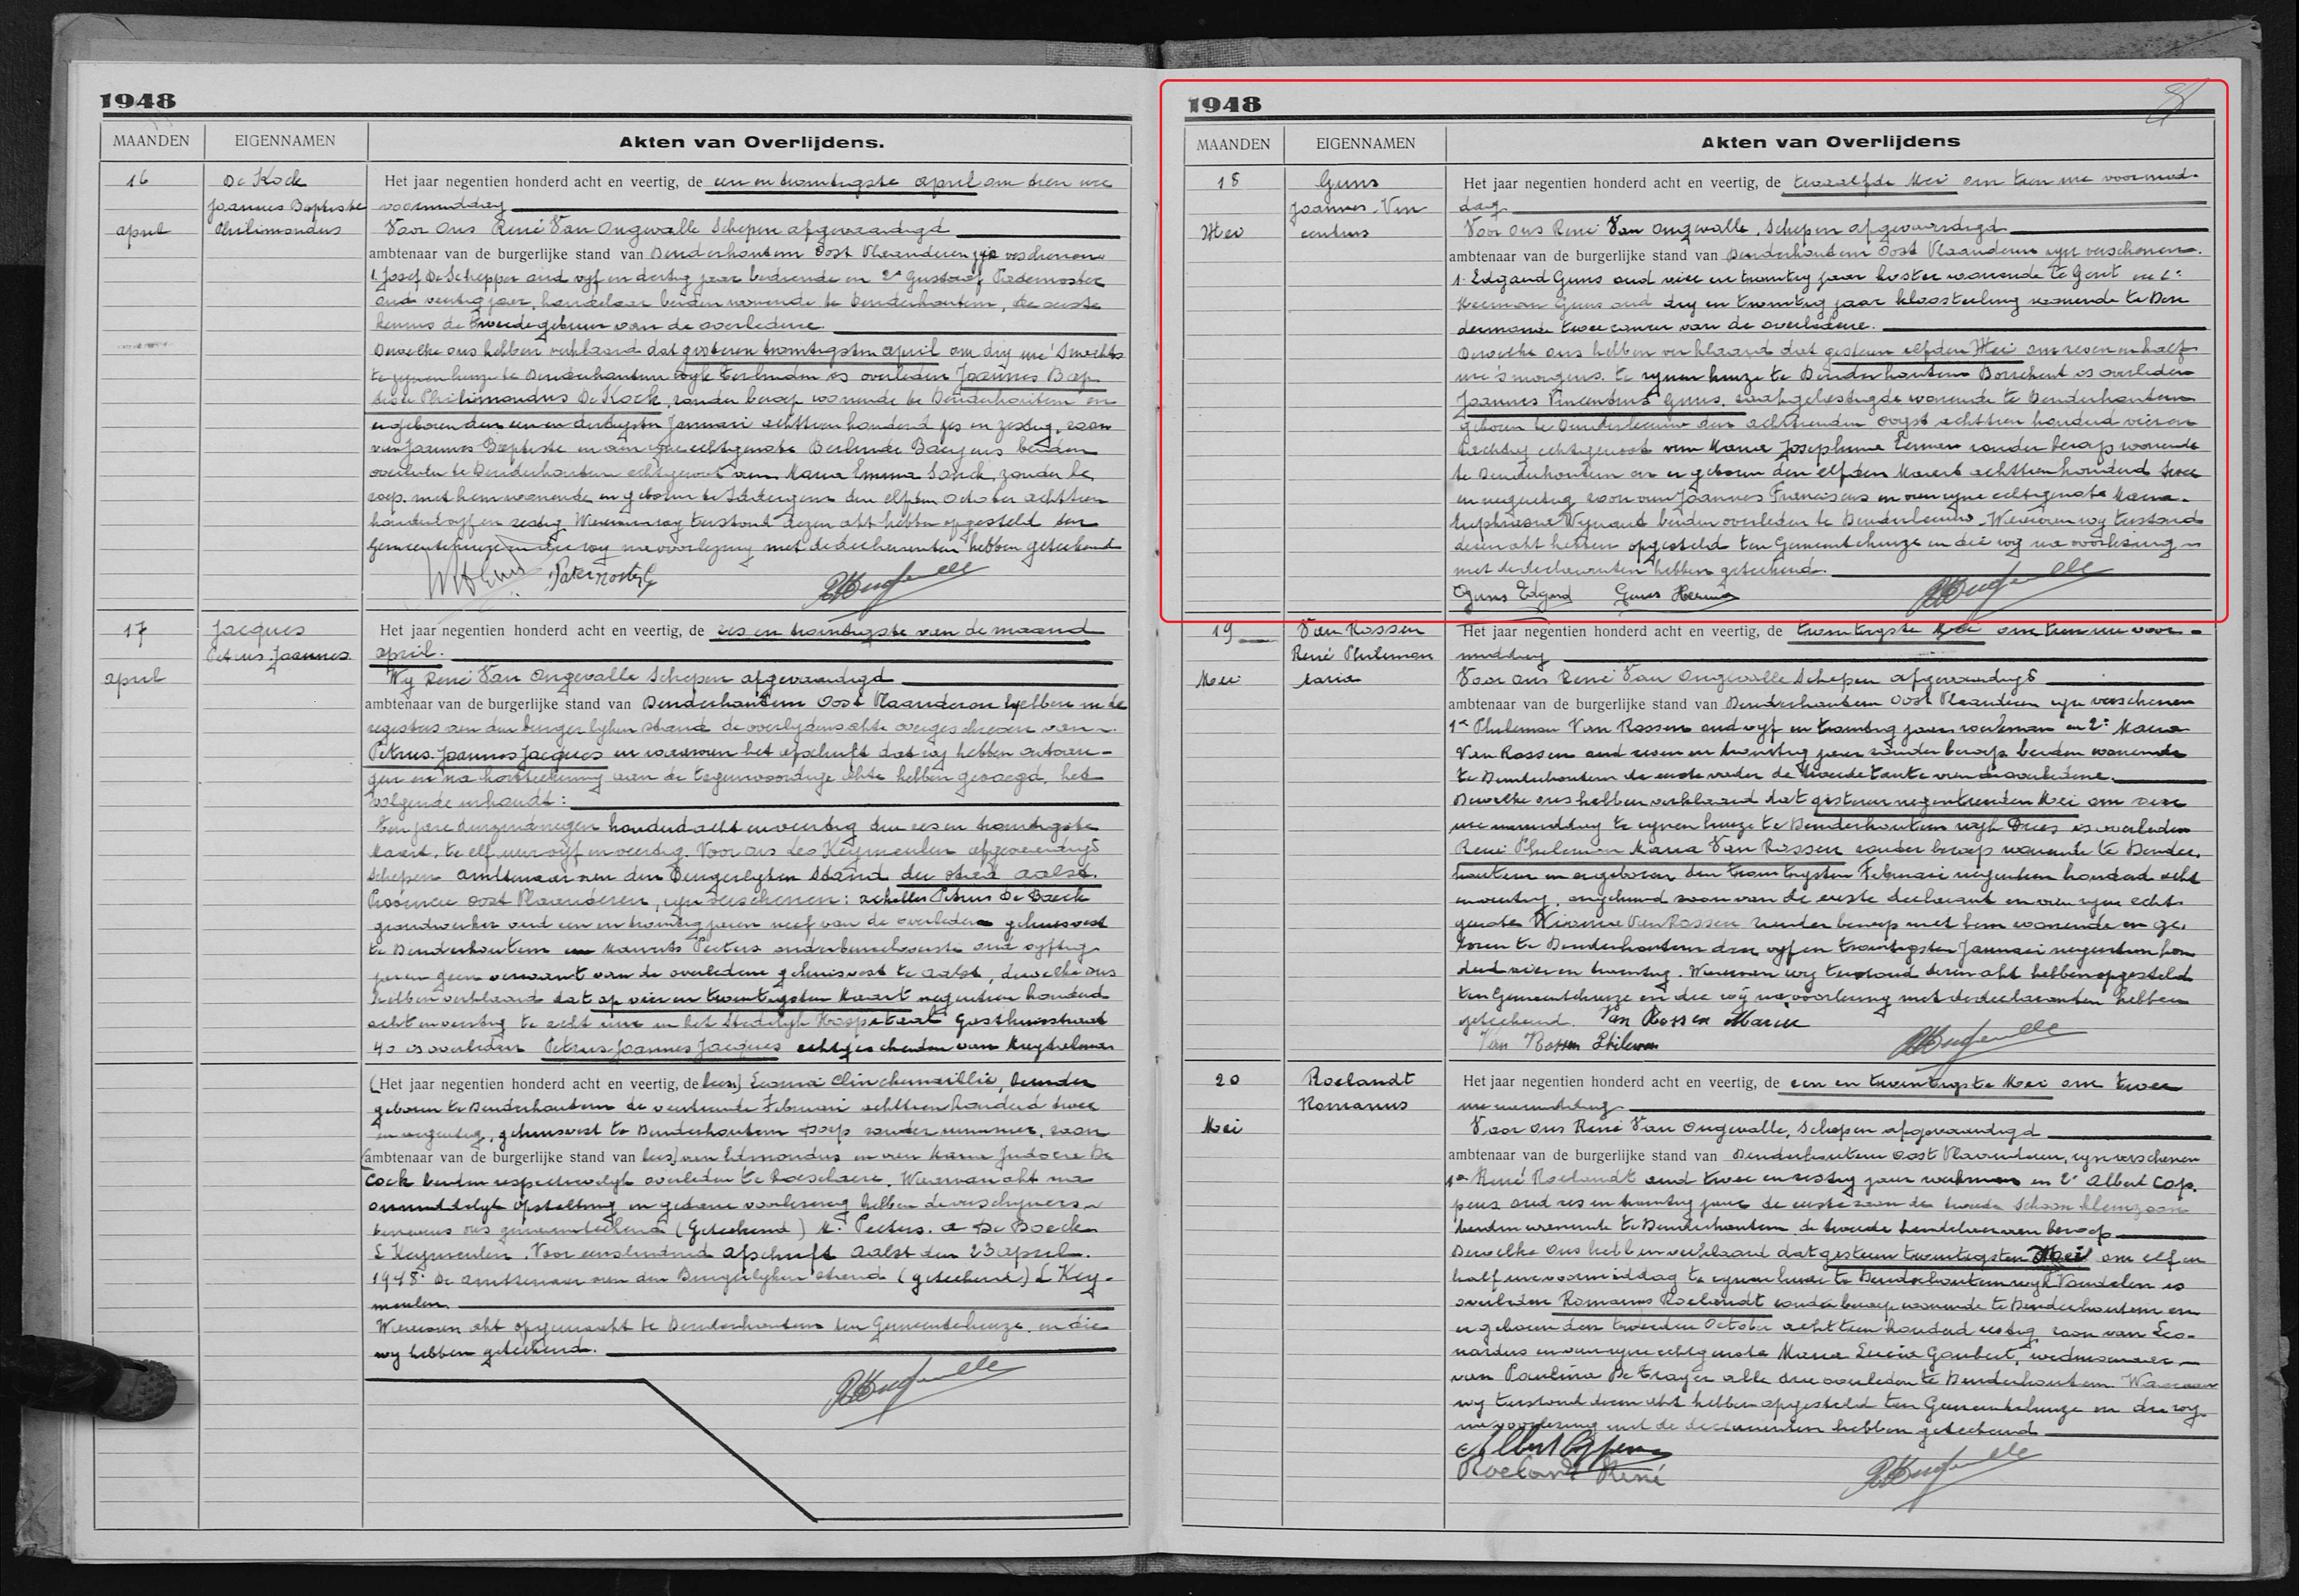 1948
MAANDEN EIGENNAMEN Akten van Overlijdens.
16 De Kock Het jaar negentien honderd acht en veertig, de een en twintigste april om tien ure
Joannes Baptiste voormiddag
april Philimondus Voor Ons René Van Ongevalle Schepen afgevaardigd
ambtenaar van de burgerlijke stand van Denderhoutem Oost Vlaanderen zijn verschenen
1. Josef De Schepper oud vyf en dertig jaar bediende en 2e Gustaaf Paternoster
oud veertig jaar, handelaar beiden wonende te Denderhoutem, de eerste
kennis de tweede gebuur van de overledene
Dewelke ons hebben verklaard dat gisteren twintigsten april om dry ure 's nachts
te zynen huize te Denderhoutem wyk Terlinden is overleden Joannes Bap-
tiste Philimondus De Kock, zonder beroep wonende te Denderhoutem en
er geboren den een en dertigsten Januari achttien honderd zes en zestig, zoon
van Joannes Baptiste en van zyne echtgenote Berlinde Baeyens beiden
overleden te Denderhoutem echtgenoot van Maria Emma Sonck, zonder be-
roep, met hem wonende en geboren te Iddergem den elfden October achttien
honderd vyf en zestig Waarvan wy terstond dezen akt hebben opgesteld ten
Gemeentehuize en die wy na voorlezing met de declaranten hebben geteekend
Paternoster G
17 Jacques Het jaar negentien honderd acht en veertig, de zes en twintigste van de maand
Petrus Joannes april.
april Wy René Van Ongevalle Schepen afgevaardigd
ambtenaar van de burgerlijke stand van Denderhoutem Oost Vlaanderen hebben in de
registers van den burgerlyken stand de overlydensakte overgeschreven van
Petrus Joannes Jacques en waarvan het afschrift dat wy hebben ontvan-
gen en na kortteekening aan de tegenwoordige akte hebben gevoegd, het
volgende inhoudt:
Ten jare duizend negen honderd acht en veertig den zes en twintigste
Maart, te elf uur vyf en veertig. Voor ons Leo Keymeulen afgevaardigd
Schepen amtenaar van den Burgerlyken Stand der stad Aalst.
Provincie Oost Vlaanderen, zyn verschenen: Achilles Petrus De Boeck
grondwerker oud een en twintig jaren neef van de overledene gehuisvest
te Denderhoutem en Maurits Peeters onderbureeloverste oud vyftig
jaren geen verwant van de overledene gehuisvest te Aalst, dewelke ons
hebben verklaard dat op vier en twintigsten Maart negentien honderd
acht en veertig te acht uur in het Stedelyk Hospitaal Gasthuisstraat
40 is overleden Petrus Joannes Jacques echtgescheiden van
(Het jaar negentien honderd acht en veertig, de lees) Leonia Clinckemaillie,
geboren te Denderhoutem de veertiende Februari achttien honderd twee
en negentig, gehuisvest te Denderhoutem Dorp zonder nummer, zoon
(ambtenaar van de burgerlijke stand van lees) van Edmondus en van Maria Judoca De
Cock beiden respectievelyk overleden te Roeselaere. Waarvan akt na
onmiddelyk opstelling en gedane voorlezing hebben de verschyners
benevens ons getekend (Geteekend) M. Peeters. A De Boeck
L Keymeulen. Voor eensluidend afschrift Aalst den 23 april.
1948. De amtenaar van den Burgerlyken Stand (geteekend) L Key-
meulen.
Waarvan akt opgemaakt te Denderhoutem ten Gemeentehuize en die
wy hebben geteekend.
1948
MAANDEN EIGENNAMEN Akten van Overlijdens
18 Guns Het jaar negentien honderd acht en veertig, de twaalfde Mei om tien ure voormid-
Joannes Vin dag
Mei centius Voor ons René Van Ongevalle, Schepen afgevaardigd
ambtenaar van de burgerlijke stand van Denderhoutem Oost Vlaanderen zyn verschenen.
1. Edgard Guns oud vier en twintig jaar koster wonende te Gent en 2e
Herman Guns oud dry en twintig jaar kloosterling wonende te Den
dermonde twee zonen van de overledene.
Dewelke ons hebben verklaard dat gisteren elfden Mei om zeven en half
ure 's morgens te zynen huize te Denderhoutem Borrekent is overleden
Joannes Vincentius Guns, wonende te Denderhoutem
geboren te Denderleeuw den achttienden oogst achttien honderd vier en
tachtig echtgenoot van Maria Josephina zonder beroep wonende
te Denderhoutem en er geboren den elfden Maart achttien honderd twee
en negentig zoon van Joannes Franciscus en van zyne echtgenote Maria
Wynant beiden overleden te Denderleeuw. Waarvan wy terstond
dezen akt hebben opgesteld ten Gemeentehuize en die wy na voorlezing
met de declaranten hebben geteekend.
Guns Edgard Guns Herman
19 Van Rossen Het jaar negentien honderd acht en veertig, de twintigste Mei om tien ure voor
René Philemon middag
Mei Maria Voor ons René Van Ongevalle Schepen afgevaardigd
ambtenaar van de burgerlijke stand van Denderhoutem Oost Vlaanderen zyn verschenen
1e Philemon Van Rossen oud vyf en twintig jaar werkman en 2e Maria
Van Rossen oud zeven en twintig jaar zonder beroep beiden wonende
te Denderhoutem de eerste vader de tweede tante van de overledene.
Dewelke ons hebben verklaard dat gisteren negentienden Mei om
ure namiddag te zynen huize te Denderhoutem wyk Dries is overleden
René Philemon Maria Van Rossen zonder beroep wonende te Dender-
houtem en er geboren den twintigsten Februari negentien honderd acht
en veertig, zoon van de eerste declarant en van zyne echt-
genote Van Rossen zonder beroep met hem wonende en ge-
boren te Denderhoutem den vyf en twintigsten Januari negentien hon
derd vier en twintig. Waarvan wy terstond dezen akt hebben opgesteld
ten Gemeentehuize en die wy na voorlezing met de declaranten hebben
geteekend. Van Rossen Maria
Van Rossen Philemon
20 Roelandt Het jaar negentien honderd acht en veertig, de een en twintigste Mei om twee
Romanus ure namiddag
Mei Voor ons René Van Ongevalle, Schepen afgevaardigd
ambtenaar van de burgerlijke stand van Denderhoutem Oost Vlaanderen, zyn verschenen
1e René Roelandt oud twee en zestig jaar werkman en 2e Albert Cop-
pens oud zes en twintig jaar de eerste zoon de tweede schoon kleinzoon
beiden wonende te Denderhoutem de tweede handelaar van beroep
Dewelke ons hebben verklaard dat gisteren twintigsten Mei om elf en
half ure voormiddag te zynen huize te Denderhoutem wyk Vondelen is
overleden Romanus Roelandt zonder beroep wonende te Denderhoutem en
er geboren den tweeden October achttien honderd zestig zoon van Leo-
nardus en van zyne echtgenote Maria Lucia Goubert, weduwnaar
van Paulina De Trayer alle drie overleden te Denderhoutem Waarvan
wy terstond dezen akt hebben opgesteld ten Gemeentehuize en die wy
na voorlezing met de declaranten hebben geteekend
Albert Coppens
Roelandt René